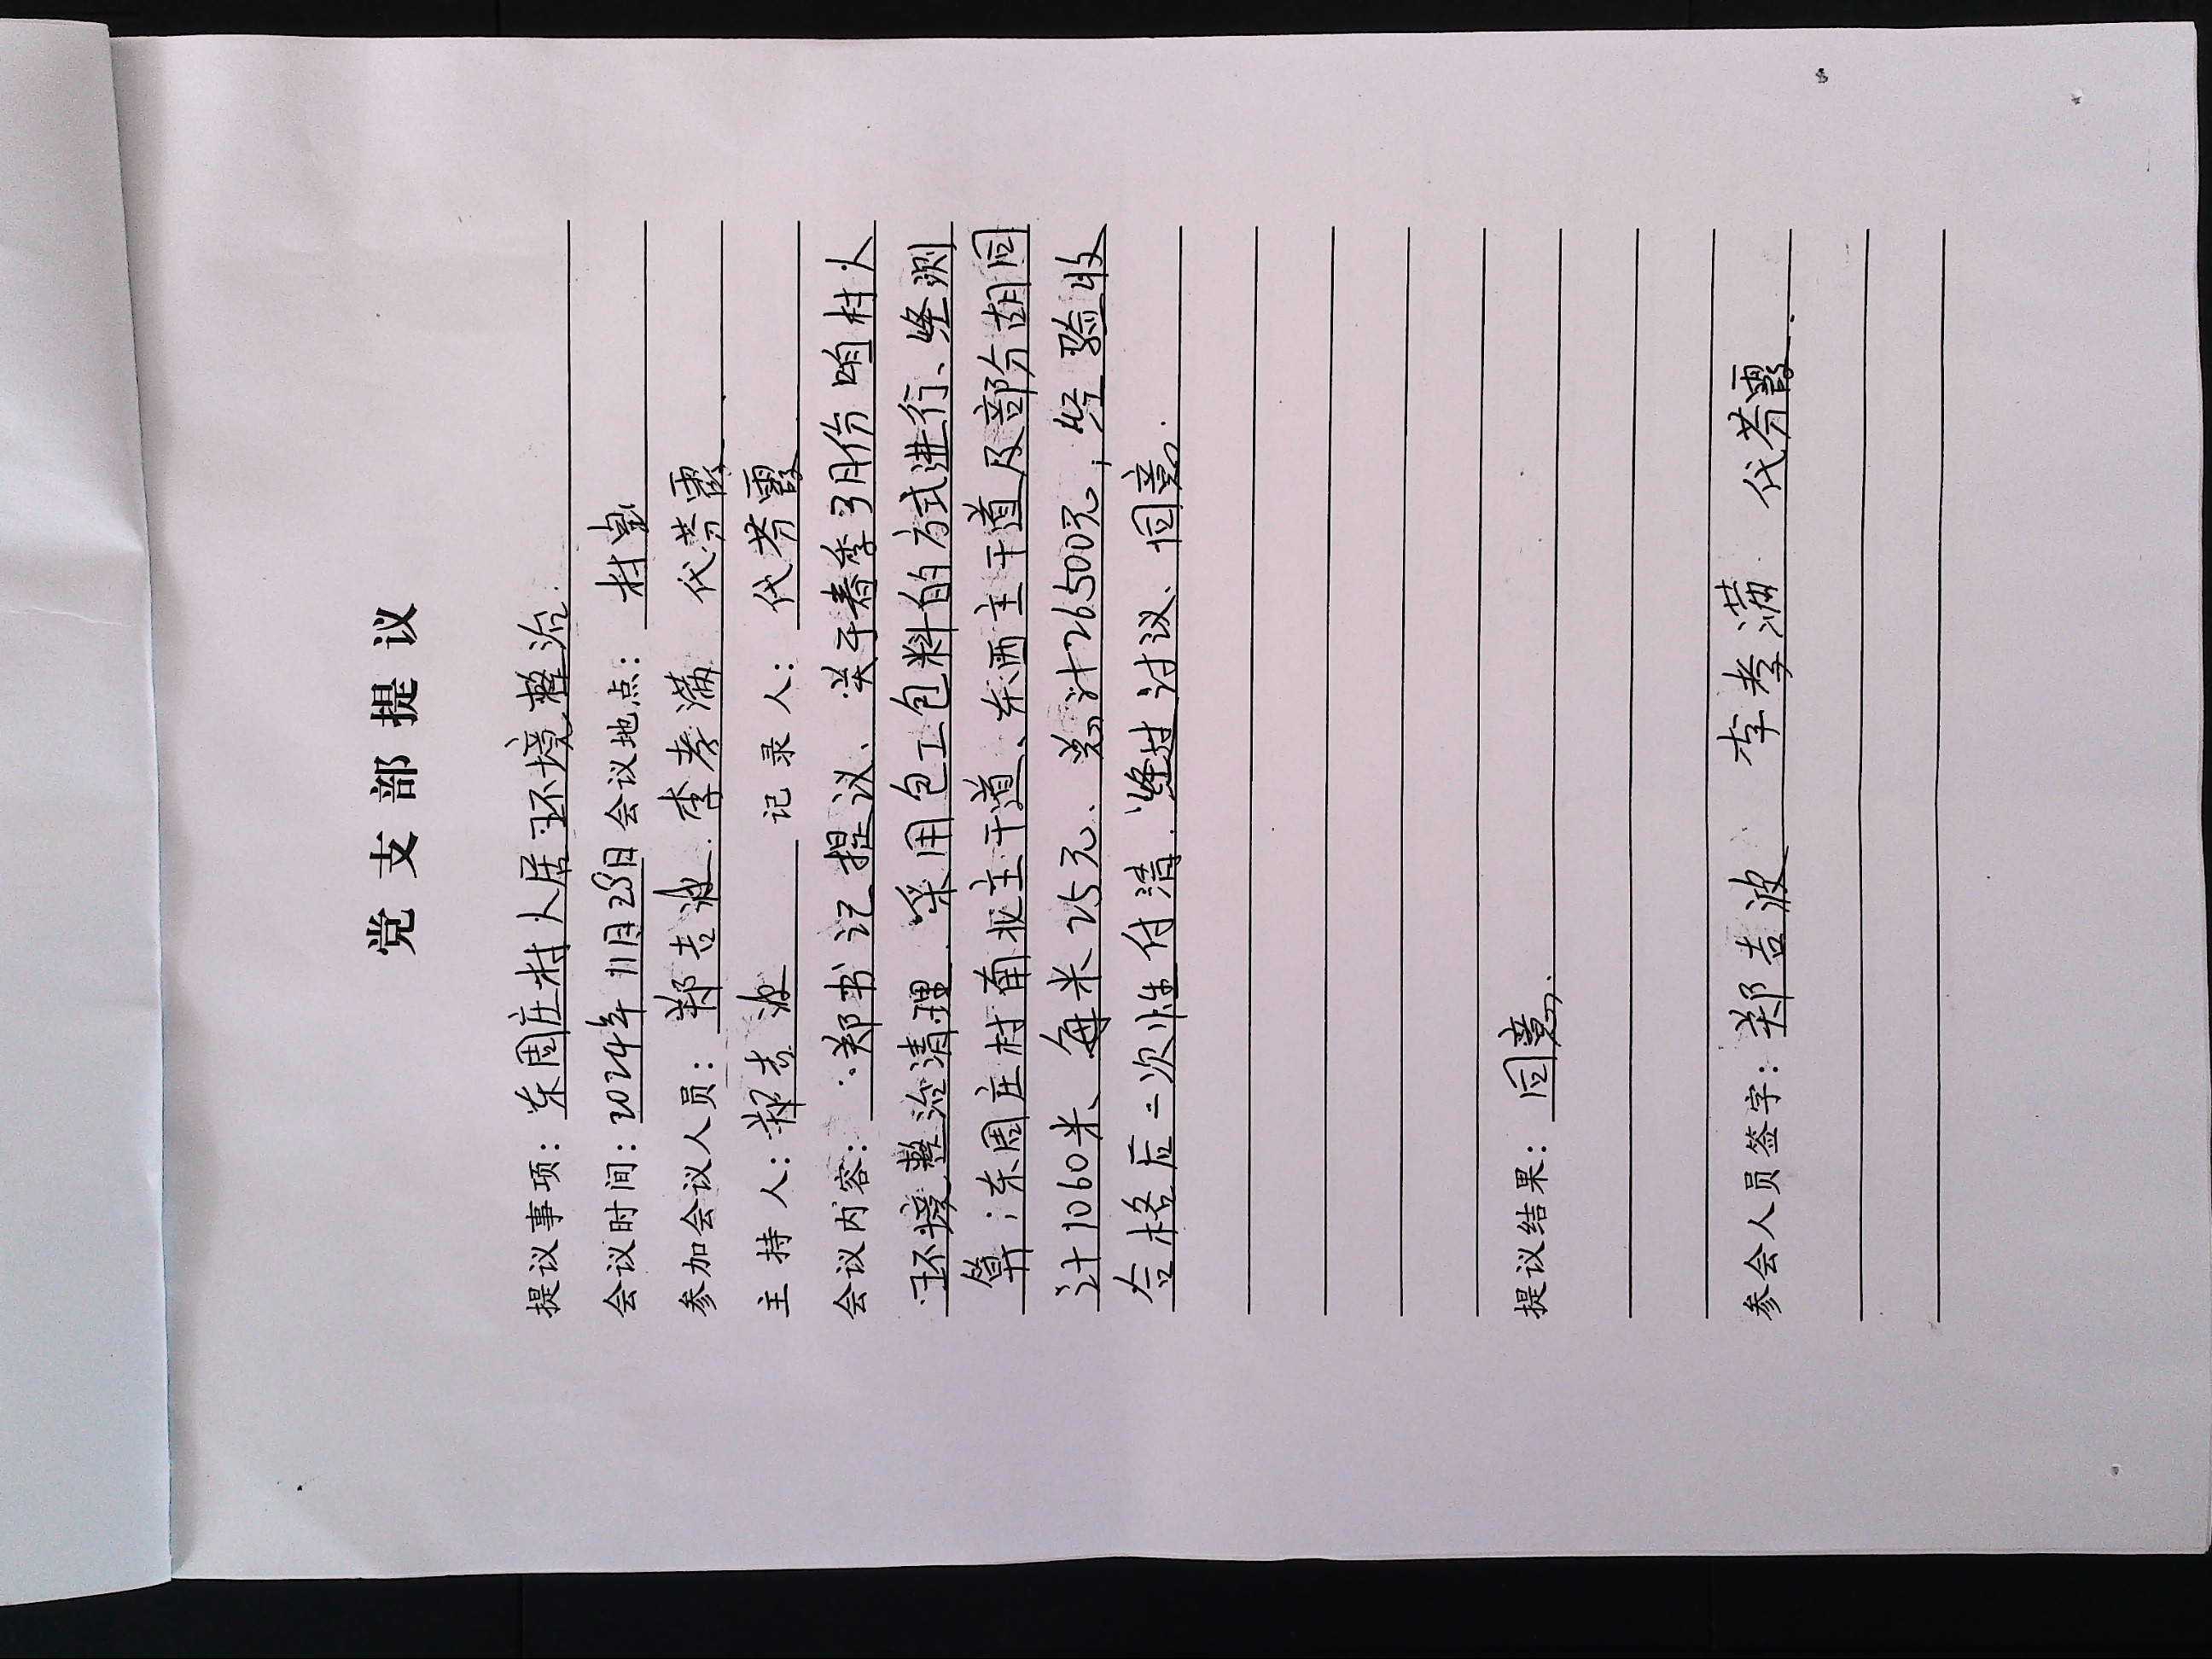 党支部提议
提议事项：东周庄村人居环境整治.
会议时间：2024年11月28日会议地点：村室
参加会议人员：郑吉波.李孝满 代芳霞.
主持人：郑吉波 记录人：代芳霞
会议内容：郑书记提议、关于春季3月份咱村人
环境整治清理.采用包工包料的方式进行、经测
算；东周庄村南北主干道、东西主干道及部分胡同
计1060米、每米25元、总计26500元；经验收
合格后一次性付清.经过议、同意.
提议结果：同意.
参会人员签字：郑吉波、李孝满 代芳霞.